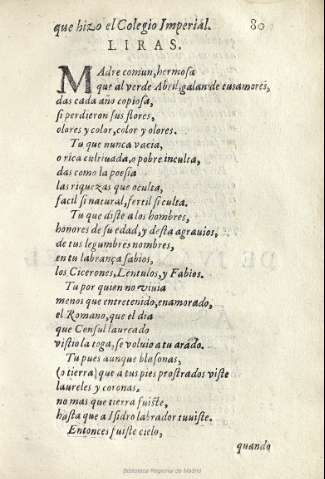 que hizo el Colegio Imperial. 80
LIRAS.
MAdre comun, hermosa
que al verde Abril, galan de tus amores,
das cada año copiosa,
si perdieron sus flores,
olores y color, color y olores.
Tu que nunca vacia,
o rica cultiuada, o pobre inculta,
das como la poesia
las riquezas que oculta,
facil si natural, fertil si culta.
Tu que diste a los hombres,
honores de su edad, y desta agrauios,
de tus legumbres nombres,
en tu labrança sabios,
los Cicerones, Lentulos, y Fabios.
Tu por quien no viuia
menos que entretenido, enamorado,
el Romano, que el dia
que Consul laureado
vistio la toga, se voluio a tu arado.
Tu pues aunque blasonas,
(o tierra) que a tus pies prostrados viste
laureles y coronas,
no mas que tierra fuiste,
hasta que a Isidro labrador tuuiste.
Entonces fuiste cielo,
quando
Biblioteca Regional de Madrid